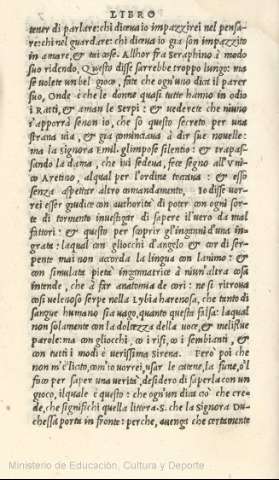 LIBRO
tener di parlare: chi diceua io impazzirei nel pensa-
re: chi nel guardare: chi diceua io gia son impazzito
in amare, & tai cose. Allhor fra Seraphino à modo
suo ridendo, Questo disse sarrebbe troppo lungo: ma
se volete un bel gioco, fate che ogn'uno dica il parer
suo, Onde è che le donne quasi tutte hanno in odio
i Ratti, & aman le Serpi: & uederete che niuno
s'apporrà senon io, che so questo secreto per una
strana uia, & gia cominciaua à dir sue nouelle:
ma la signora Emil. gl'impose silentio: & trapas-
sando la dama, che iui sedeua, fece segno all'Uni-
co Aretino, alqual per l'ordine toccaua: & esso
senza aspettar altro comandamento, Io disse uor-
rei esser giudice con authorità di poter con ogni sor-
te di tormento inuestigar di sapere il uero da mal
fattori: & questo per scoprir gl'inganni d'una in-
grata: laqual con gliocchi d'angelo & cor di ser-
pente mai non accorda la lingua con l'animo: &
con simulata pietà ingannatrice à niun'altra cosa
intende, che à far anatomia de cori: ne si ritroua
cosi uelenoso serpe nella Lybia harenosa, che tanto di
sangue humano sia uago, quanto questa falsa: laqual
non solamente con la dolcezza della uoce, & meliflue
parole: ma con gliocchi, co i risi, co i sembianti, &
con tutti i modi è uerissima Sirena. Però poi che
non m'è licito, com'io uorrei, usar le catene, la fune, ò'l
fuoco per saper una uerità, desidero di saperla con un
gioco, ilquale è questo: che ogn'un dica ciò che cre-
de, che significhi quella littera. S. che la Signora Du-
chessa porta in fronte: perche, auenga che certamente
Ministerio de Educación, Cultura y Deporte